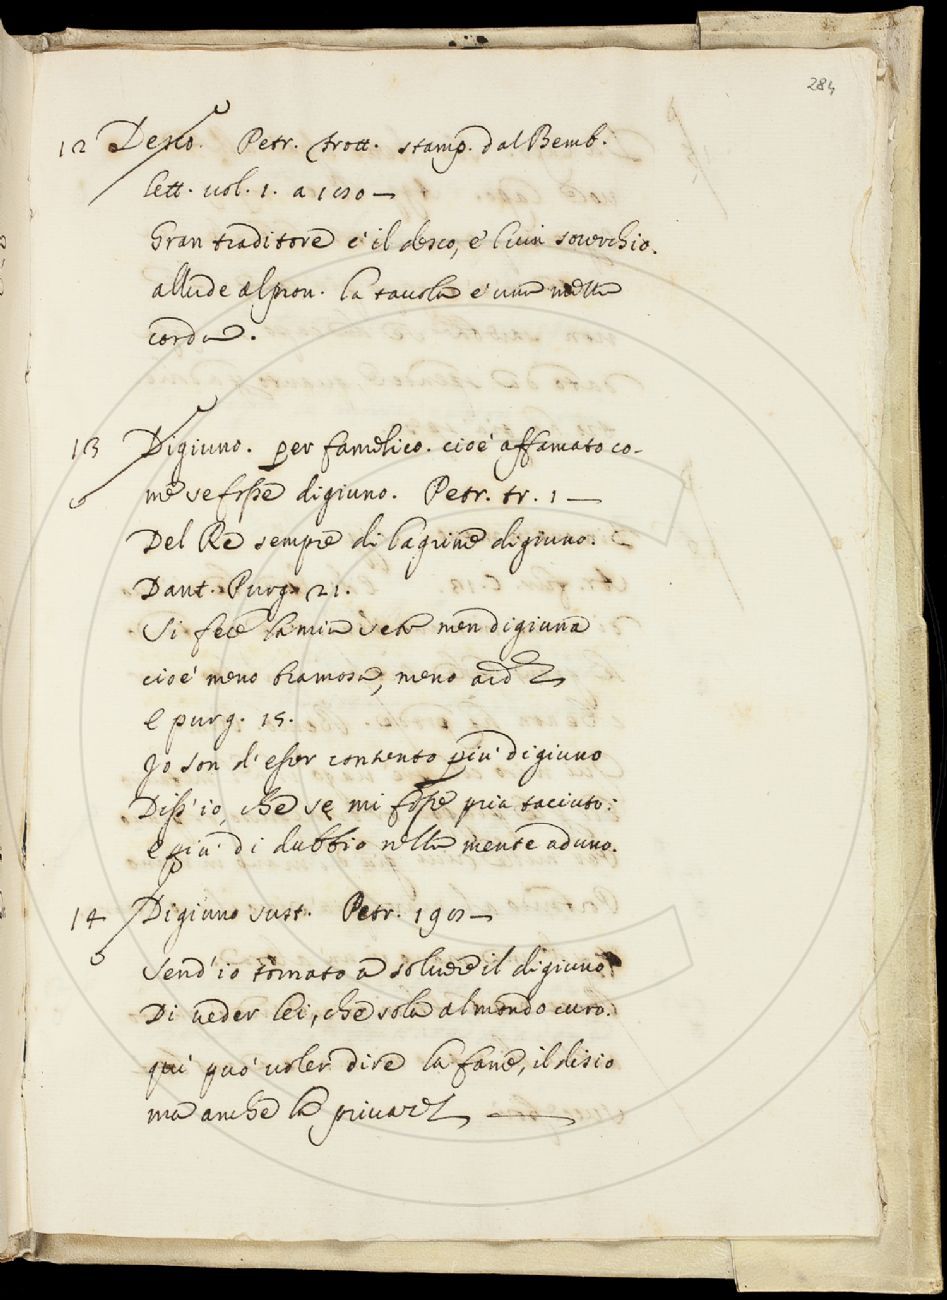 284
12 Desco. Petr. frott. stamp. dal Bemb.
lett. vol. 1. a
Gran traditore è il desco, e'l vin soverchio.
allude al prov. la tavola è una mezza
corda.
13 Digiuno. per famelico. cioè affamato co-
me se fosse digiuno. Petr. tr. 1 —
Del Re sempre di lagrime digiuno.
Dant. Purg. 21.
Si fece la mia sete men digiuna
cioè meno bramosa, meno
E purg. 15.
Io son d'esser contento più digiuno
Diss'io, che se mi fosse pria taciuto:
e più di dubbio nella mente aduno.
14 Digiuno sust. Petr.
Send'io tornato a solvere il digiuno
Di veder lei, che sola al mondo curo.
qui può voler dire la fame, il disio
ma anche la